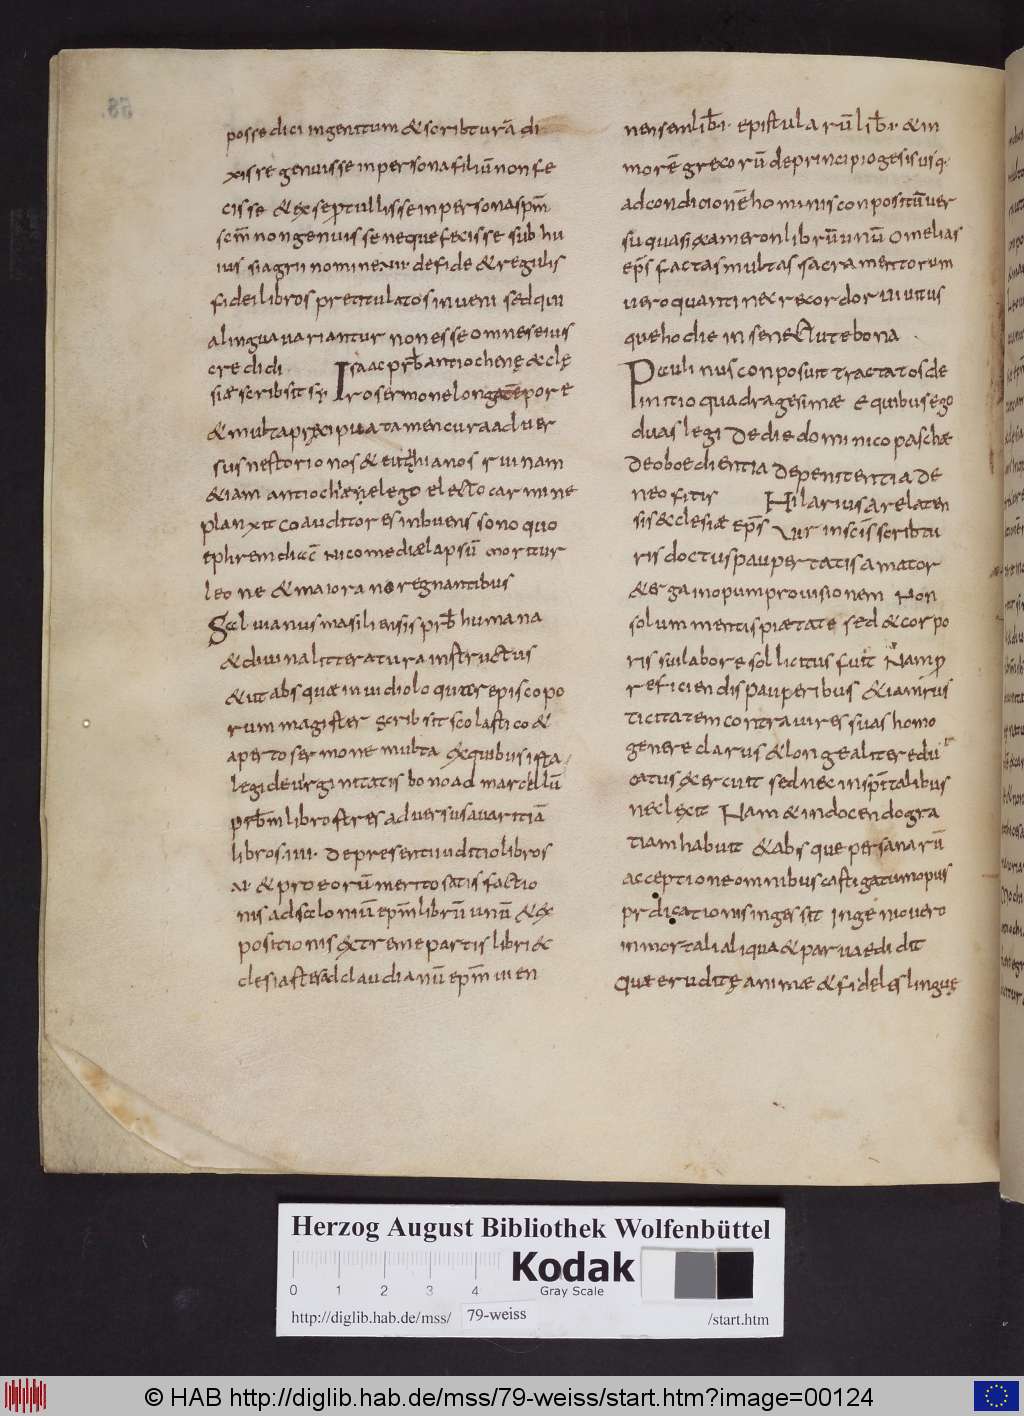 posse dici ingenitum & scribturā di
xisse genuisse in persona filiū non fe
cisse & exseptullisse in persona spm̄
scm̄ non genuisse neque fecisse sub hu
ius siagrii nomine .VII. de fide & regulis
fidei libros pretitulatos inveni sed qui
a lingua variantur non esse omnes eius
credidi. Isaac prb̄ antiochenę & clę
siæ scribsit sy
ro sermone longa tēpore
& multa pręcipua tamen cura adver
sus nestorionos & eutychianos ruinam
&iam antiochæ
planxit eo auditores inbuens sono quo
ephrem
nicomediæ lapsū moritur
leone & maiorano regnantibus
Salvianus masiliensis prb̄ humana
& divina litteratura instructus
& ut absque invidia loquar episcopo
rum magister scribsit scolastico &
aperto sermone multa ex quibus ista
legi de virginitatis bono ad marcellū
prb̄m libros tres adversus avaritiā
libros .IIII. de presenti iuditio libros
& pro eorū merito satisfactio
nis ad salonium epm̄ librū unū & ex
positionis extreme partis libri &c
clesiastes ad claudianū epm̄ vien
nensem lib̄ .I. epistularū lib̄ .I. & in
morē grecorū de principio gesis usq;
ad condicionē hominis conpositū ver
su quasi exameron librū unū omelias
ep̄s factas multas sacramentorum
vero quanti nec recordor vivit us
que hodie in senectute bona.
Paulinus conposuit tractatos de
initio quadragesimæ e quibus ego
duas legi de die dominico paschæ
de oboedientia de penitentia de
neofitis Hilarius arelaten
sis &clesiæ ep̄s vir in scīs scribtu
ris doctus paupertatis amator
& erga inopum provisionem non
solum mentis piætate sed & corpo
ris sui labore sollicitus fuit Nam p
reficiendis pauperibus &iam rus
ticitatem contra vires suas homo
genere clarus & longe aliter edu
catus exercuit sed nec in spītalibus
neclexit Nam & in docendo gra
tiam habuit & absque personarū
acceptione omnibus castigatum opus
prdicationis ingessit ingenio vero
inmortali aliqua & parva edidit
quæ eruditę animæ & fideles linguę
Herzog August Bibliothek Wolfenbüttel
0 1 2 3 4
Kodak
Gray Scale
http://diglib.hab.de/mss/ 79-weiss /start.htm
© HAB http://diglib.hab.de/mss/79-weiss/start.htm?image=00124